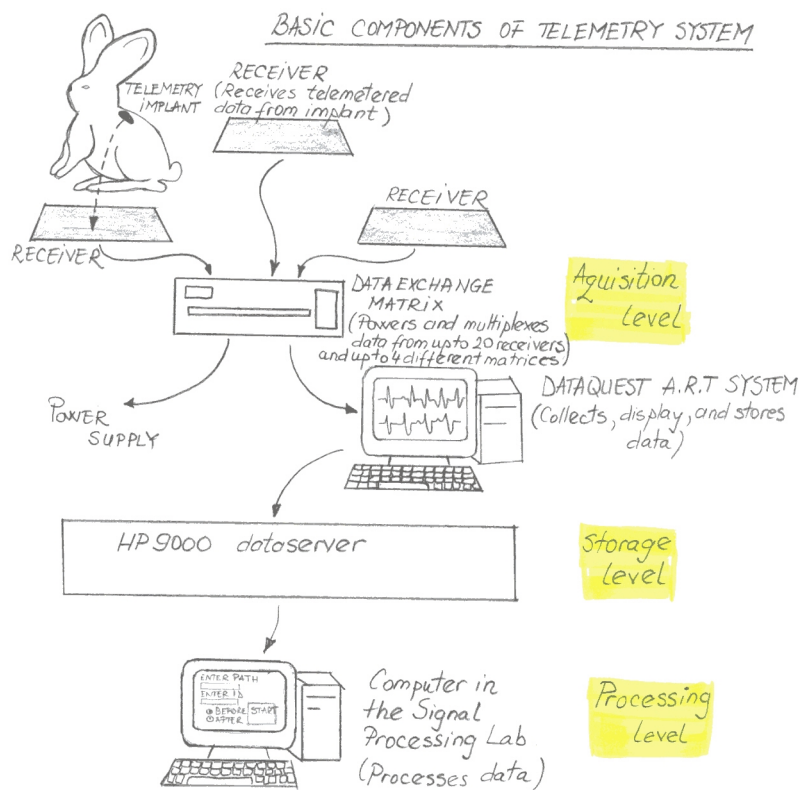 BASIC COMPONENTS OF TELEMETRY SYSTEM
TELEMETRY
IMPLANT
RECEIVER
(Receives telemetered
data from implant)
RECEIVER
RECEIVER
DATA EXCHANGE
MATRIX
(Powers and multiplexes
data from up to 20 receivers
and up to 4 different matrices)
Aquisition
level
POWER
SUPPLY
DATAQUEST A.R.T SYSTEM
(Collects, display, and stores
data)
HP9000 dataserver
Storage
level
ENTER PATH
ENTER ID
BEFORE
AFTER
START
Computer in
the Signal
Processing Lab
(Processes data)
Processing
level